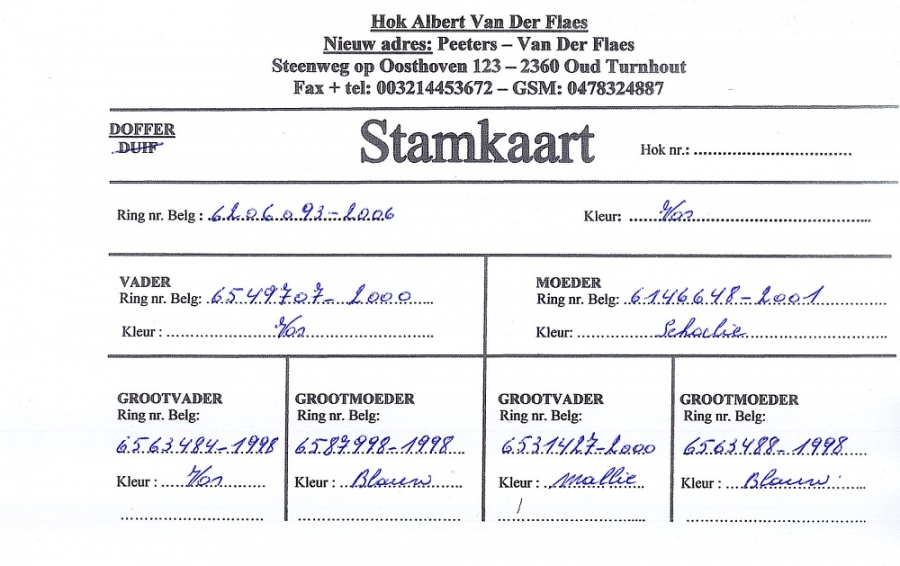 Hok Albert Van Der Flaes
Nieuw adres: Peeters – Van Der Flaes
Steenweg op Oosthoven 123 – 2360 Oud Turnhout
Fax + tel: 003214453672 – GSM: 0478324887
DOFFER
DUIF
Stamkaart
Hok nr.: ..............................
Ring nr. Belg : 6206093-2006
Kleur: Vos
VADER
Ring nr. Belg: 6549707-2000
Kleur : Vos
MOEDER
Ring nr. Belg: 6146648-2001
Kleur: Schalie
GROOTVADER
Ring nr. Belg:
6563484-1998
Kleur : Vos
GROOTMOEDER
Ring nr. Belg:
6587998-1998
Kleur : Blauw
GROOTVADER
Ring nr. Belg:
6531427-2000
Kleur : Mallie
GROOTMOEDER
Ring nr. Belg:
6563488-1998
Kleur : Blauw